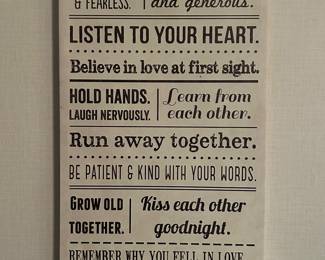 & FEARLESS. and generous.
LISTEN TO YOUR HEART.
Believe in love at first sight.
HOLD HANDS.
LAUGH NERVOUSLY.
Learn from
each other.
Run away together.
BE PATIENT & KIND WITH YOUR WORDS.
GROW OLD
TOGETHER.
Kiss each other
goodnight.
REMEMBER WHY YOU FELL IN LOVE